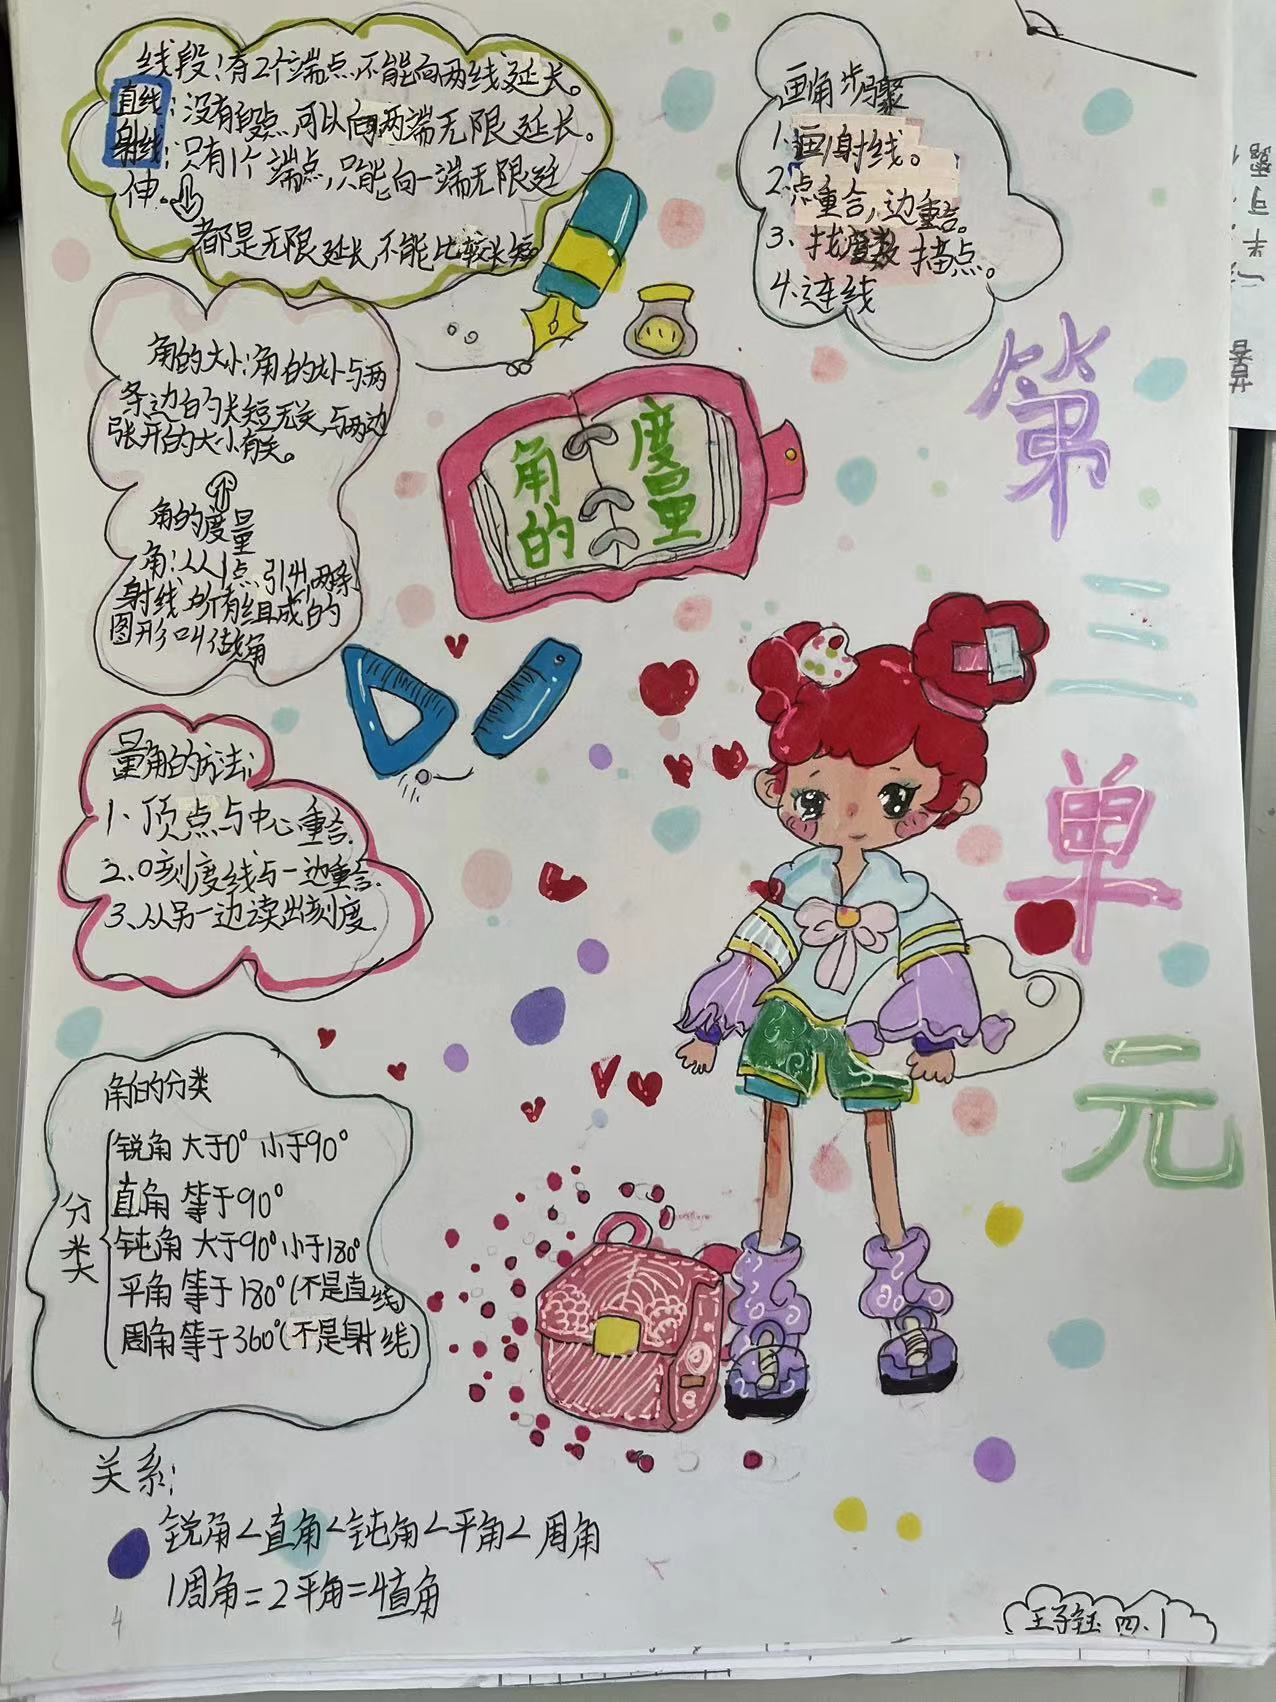 线段:有2个端点,不能向两线延长。
直线:没有段点,可以向两端无限延长。
射线:只有1个端点,只能向一端无限延
伸。
都是无限延长,不能比较长短。
画角步骤
1、画射线。
2、点重合,边重合。
3、找度数 描点。
4、连线
角的大小:角的大小与两
条边的长短无关,与两边
张开的大小有关。
角的度量
角:从1点引出两条
射线所有组成的
图形叫做角
角的
度量
第三单元
量角的方法:
1、顶点与中心重合.
2、0刻度线与一边重合.
3、从另一边读出刻度.
角的分类
分类
锐角 大于0° 小于90°
直角 等于90°
钝角 大于90°小于180°
平角 等于180°(不是直线)
周角等于360°(不是射线)
关系:
锐角<直角<钝角<平角<周角
1周角=2平角=4直角
4
王子钰 四.1